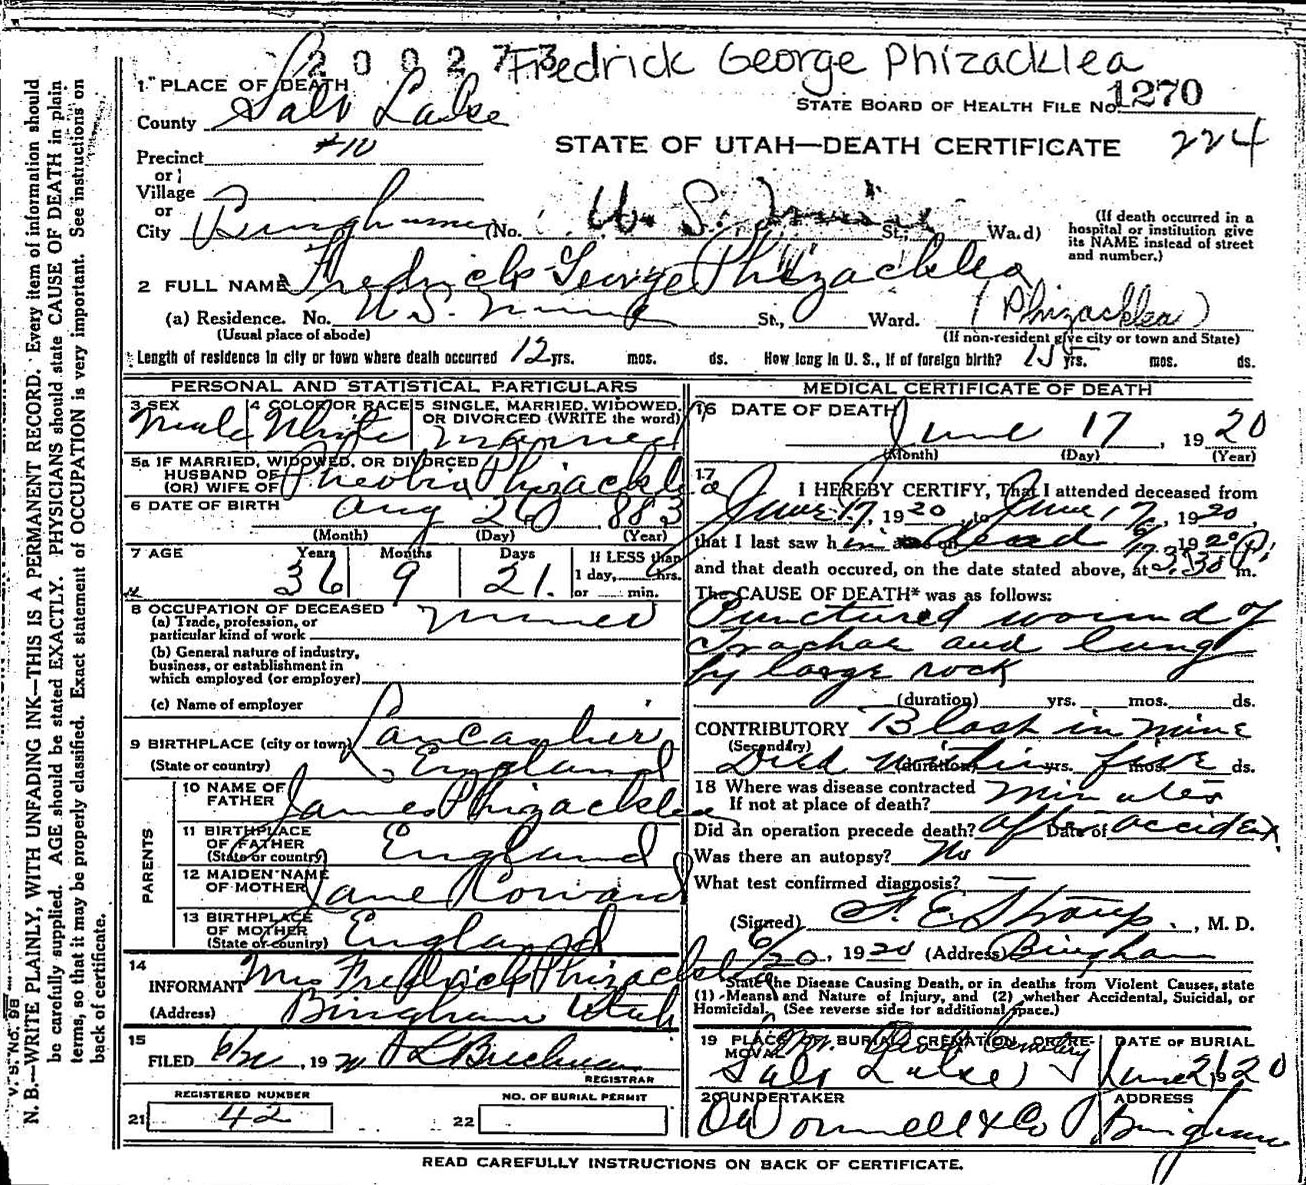 200273 Fredrick George Phizacklea
1 PLACE OF DEATH
STATE BOARD OF HEALTH FILE No. 1270
County Salt Lake
STATE OF UTAH—DEATH CERTIFICATE 224
Precinct #10
or
Village
or
City Bingham (No. U. S. Mine St., Ward)
(If death occurred in a hospital or institution give its NAME instead of street and number.)
2 FULL NAME Fredrick George Phizacklea
(Phizacklea)
(a) Residence. No. U.S. Mine St., Ward.
(Usual place of abode) (If non-resident give city or town and State)
Length of residence in city or town where death occurred 12 yrs. mos. ds. How long in U. S., if of foreign birth? 15 yrs. mos. ds.
PERSONAL AND STATISTICAL PARTICULARS
3 SEX Male
4 COLOR OR RACE White
5 SINGLE, MARRIED, WIDOWED, OR DIVORCED (WRITE the word) Married
5a IF MARRIED, WIDOWED, OR DIVORCED
HUSBAND OF
(OR) WIFE OF Phizackle
6 DATE OF BIRTH Aug 26 1883
(Month) (Day) (Year)
7 AGE Years 36 Months 9 Days 21.
If LESS than 1 day, hrs. or min.
8 OCCUPATION OF DECEASED
(a) Trade, profession, or particular kind of work Miner
(b) General nature of industry, business, or establishment in which employed (or employer)
(c) Name of employer
9 BIRTHPLACE (city or town) Lancashire
(State or country) England
PARENTS
10 NAME OF FATHER James Phizacklea
11 BIRTHPLACE OF FATHER (State or country) England
12 MAIDEN NAME OF MOTHER Jane Coward
13 BIRTHPLACE OF MOTHER (State or country) England
14 INFORMANT Mrs Fredrick Phizacklea
(Address) Bingham Utah
15 FILED , 19
REGISTRAR
REGISTERED NUMBER
21 42
NO. OF BURIAL PERMIT
22
MEDICAL CERTIFICATE OF DEATH
16 DATE OF DEATH June 17, 1920
(Month) (Day) (Year)
17 I HEREBY CERTIFY, That I attended deceased from
June 17, 1920, to June 17, 1920,
that I last saw him dead 1920
and that death occured, on the date stated above, at 3.30 P. m.
The CAUSE OF DEATH* was as follows:
Punctured wound of
Trachae and lung
by large rock
(duration) yrs. mos. ds.
CONTRIBUTORY Blast in mine
(Secondary)
Died within five
(duration) yrs. mos. ds.
18 Where was disease contracted
If not at place of death? minutes
Did an operation precede death? after Date of accident.
Was there an autopsy? No
What test confirmed diagnosis?
(Signed) F. E. Straup, M. D.
6/20, 1920 (Address) Bingham
*State the Disease Causing Death, or in deaths from Violent Causes, state
(1) Means and Nature of Injury, and (2) whether Accidental, Suicidal, or
Homicidal. (See reverse side for additional space.)
19 PLACE OF BURIAL, CREMATION, OR REMOVAL Mt. Olivet Cemetery
Salt Lake
DATE OF BURIAL June 21, 1920
20 UNDERTAKER O'Donnell & Co
ADDRESS Bingham
READ CAREFULLY INSTRUCTIONS ON BACK OF CERTIFICATE.
V. S. No. 98
N. B.—WRITE PLAINLY, WITH UNFADING INK—THIS IS A PERMANENT RECORD. Every item of information should
be carefully supplied. AGE should be stated EXACTLY. PHYSICIANS should state CAUSE OF DEATH in plain
terms, so that it may be properly classified. Exact statement of OCCUPATION is very important. See instructions on
back of certificate.